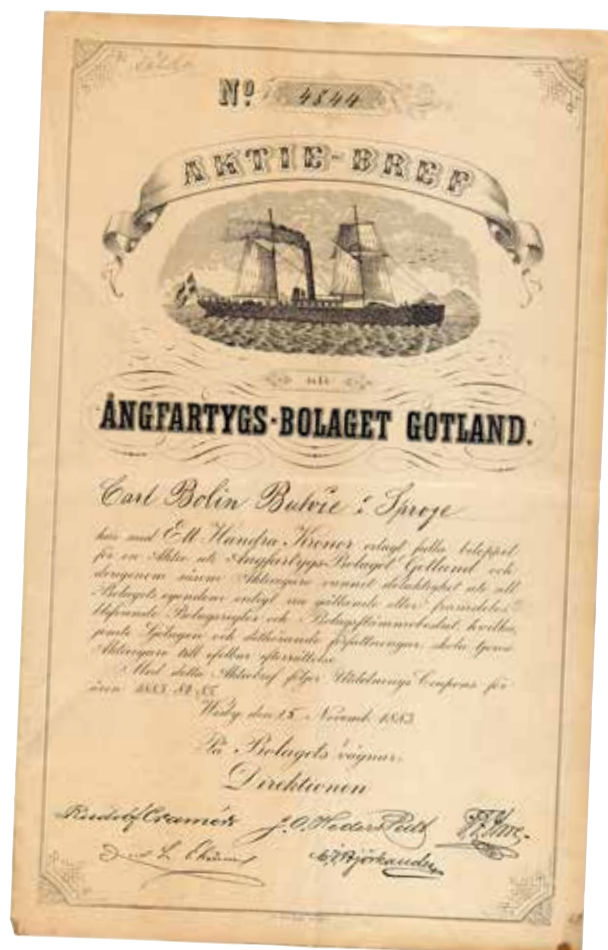 Nº 4844
AKTIE-BREF
uti
ÅNGFARTYGS-BOLAGET GOTLAND.
Carl Bolin Butvie i Sproge
har med Ett Hundra Kronor erlagt fulla beloppet
för en Aktie uti Ångfartygs-Bolaget Gotland och
derigenom såsom Aktieegare vunnit delaktighet uti all
Bolagets egendom enligt nu gällande eller framdeles
blifvande Bolagsregler och Bolagsstämmobeslut, hvilka,
jemte Sjölagen och dithörande författningar, skola tjena
Aktieegare till ofelbar efterrättelse.
Med detta Aktiebref följer Utdelnings Coupons för
åren 1883. 84. 85.
Wisby den 15 Novemb. 1883.
På Bolagets vägnar.
Direktionen
Rudolf Cramér J. O. Weders
Björkander